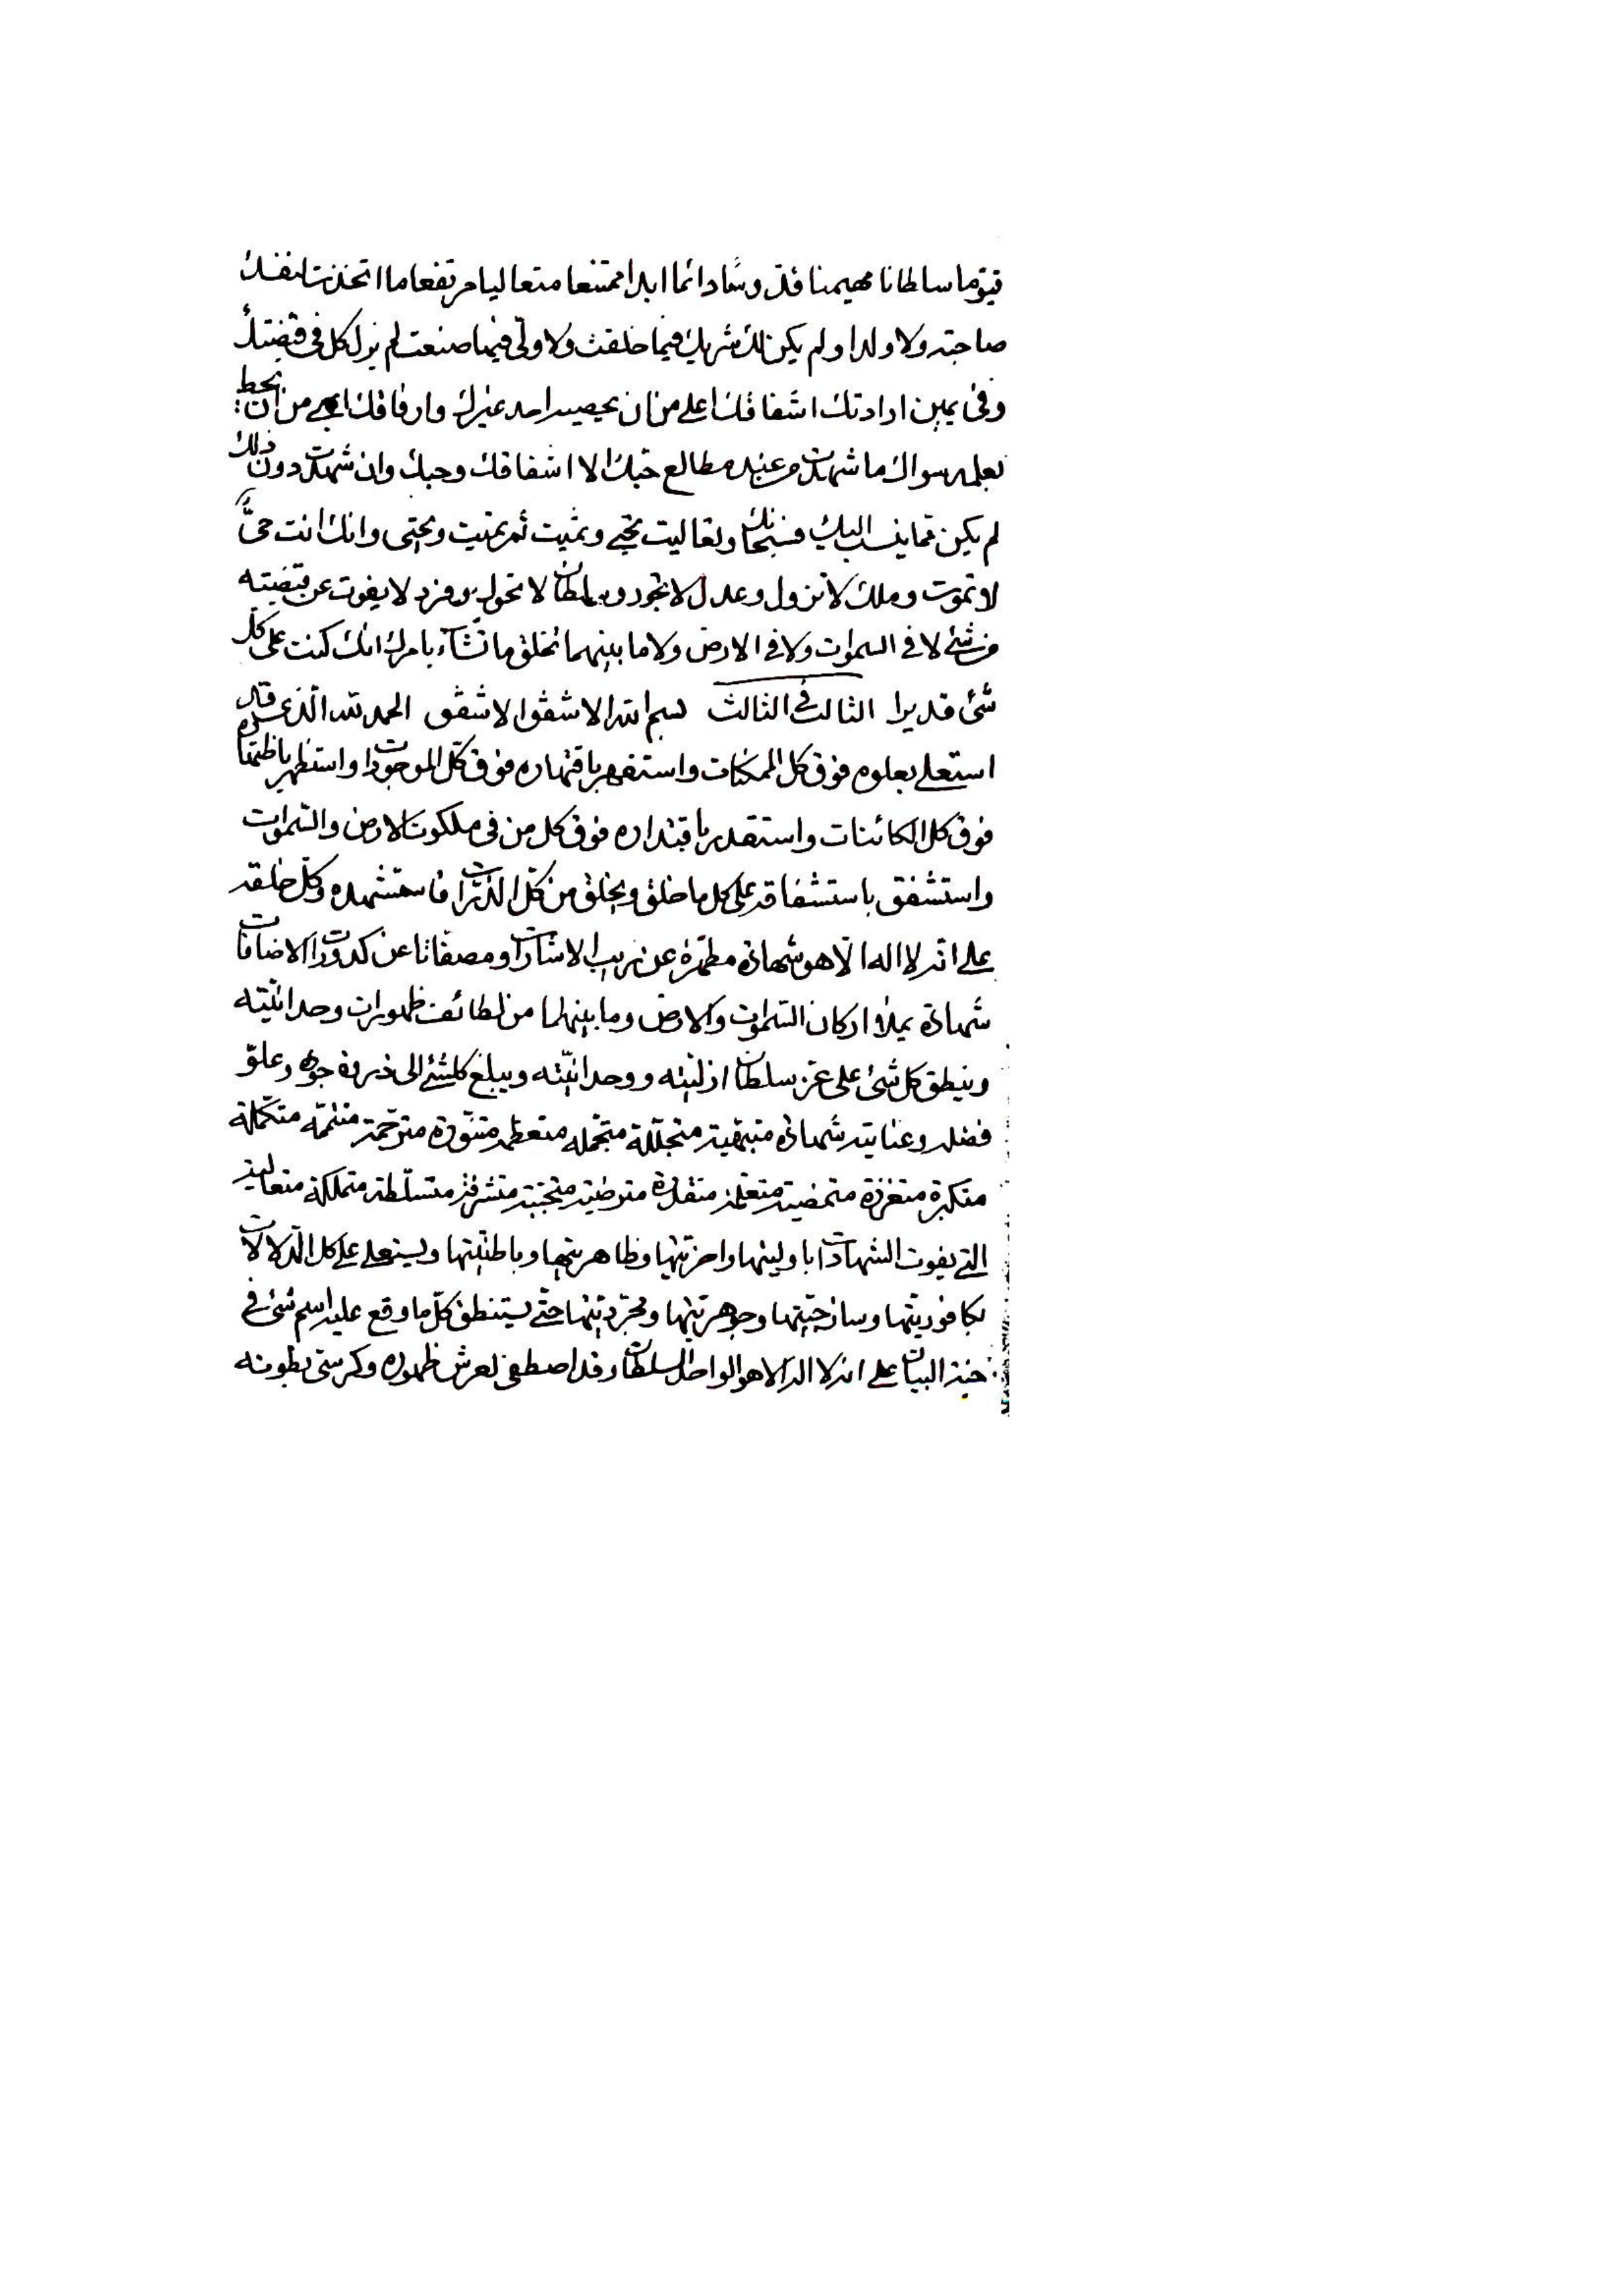 قيوما سلطانا مهيمنا قدوسا دائما ابدا ممتنعا متعاليا مرتفعا ما اتخذت لنفسك
صاحبة ولا ولدا ولم يكن لك شريك فيما خلقت ولا ولي فيما صنعت لم يزل كل في قبضتك
وفي يمين ارادتك اشفاقك اعلى من ان يحصيه احد غيرك وارفاقك من ان يحط
بعلمه سواك ما شهدت من عند مطالع حبك الا اشفاقك وحبك وان شهدت دون ذلك
لم يكن مما ينسب اليك فسبحانك وتعاليت تحيي وتميت ثم تميت وتحيى وانك انت حي
لا تموت وملك لا تزول وعدل لا تجور وسلطان لا تحول وفرد لا يفوت عن قبضته
من شئ لا في السموات ولا في الارض ولا ما بينهما تخلق ما تشاء بامرك انك كنت على كل
شئ قديرا الثالث في الثالث بسم الله الاشفق الاشفق الحمد لله الذي قد
استعلى بعلوه فوق كل الممكنات واستقهر باقتهاره فوق كل الموجودات واستظهر باظتهاره
فوق كل الكائنات واستقدر باقتداره فوق كل من في ملكوت الارض والسموات
واستشفق باستشفاقه على كل ما خلق ويخلق من كل الذرات فاستشهده وكل خلقه
على انه لا اله الا هو شهادة مطهرة عن ريب الاشارات ومصفاتا عن كدورات الاضافات
شهادة يملاء اركان السموات والارض وما بينهما من لطائف ظهورات وحدانيته
وينطق كل شئ على عز سلطان ازليته ووحدانيته ويبلغ كلشئ الى ذروة جوده وعلو
فضله وعنايته شهادة متبهية متجللة متجمله متعظمة متنورة مترحمة متتممه متكملة
متكبرة متعززة متمضية متعلمة متقدرة مترضية متحببة متشرفة متسلطة متملكة متعالية
التي يفوت الشهادات باوليتها واخريتها وظاهريتها وباطنيتها ويستعلى على كل الدلالات
بكافوريتها وساذجيتها وجوهريتها ومجرديتها حتى يستنطق كل ما وقع عليه اسم شئ في
حيز البيان على انه لا اله الا هو الواحد السلطان وقد اصطفى لعرش ظهوره وكرسي بطونه